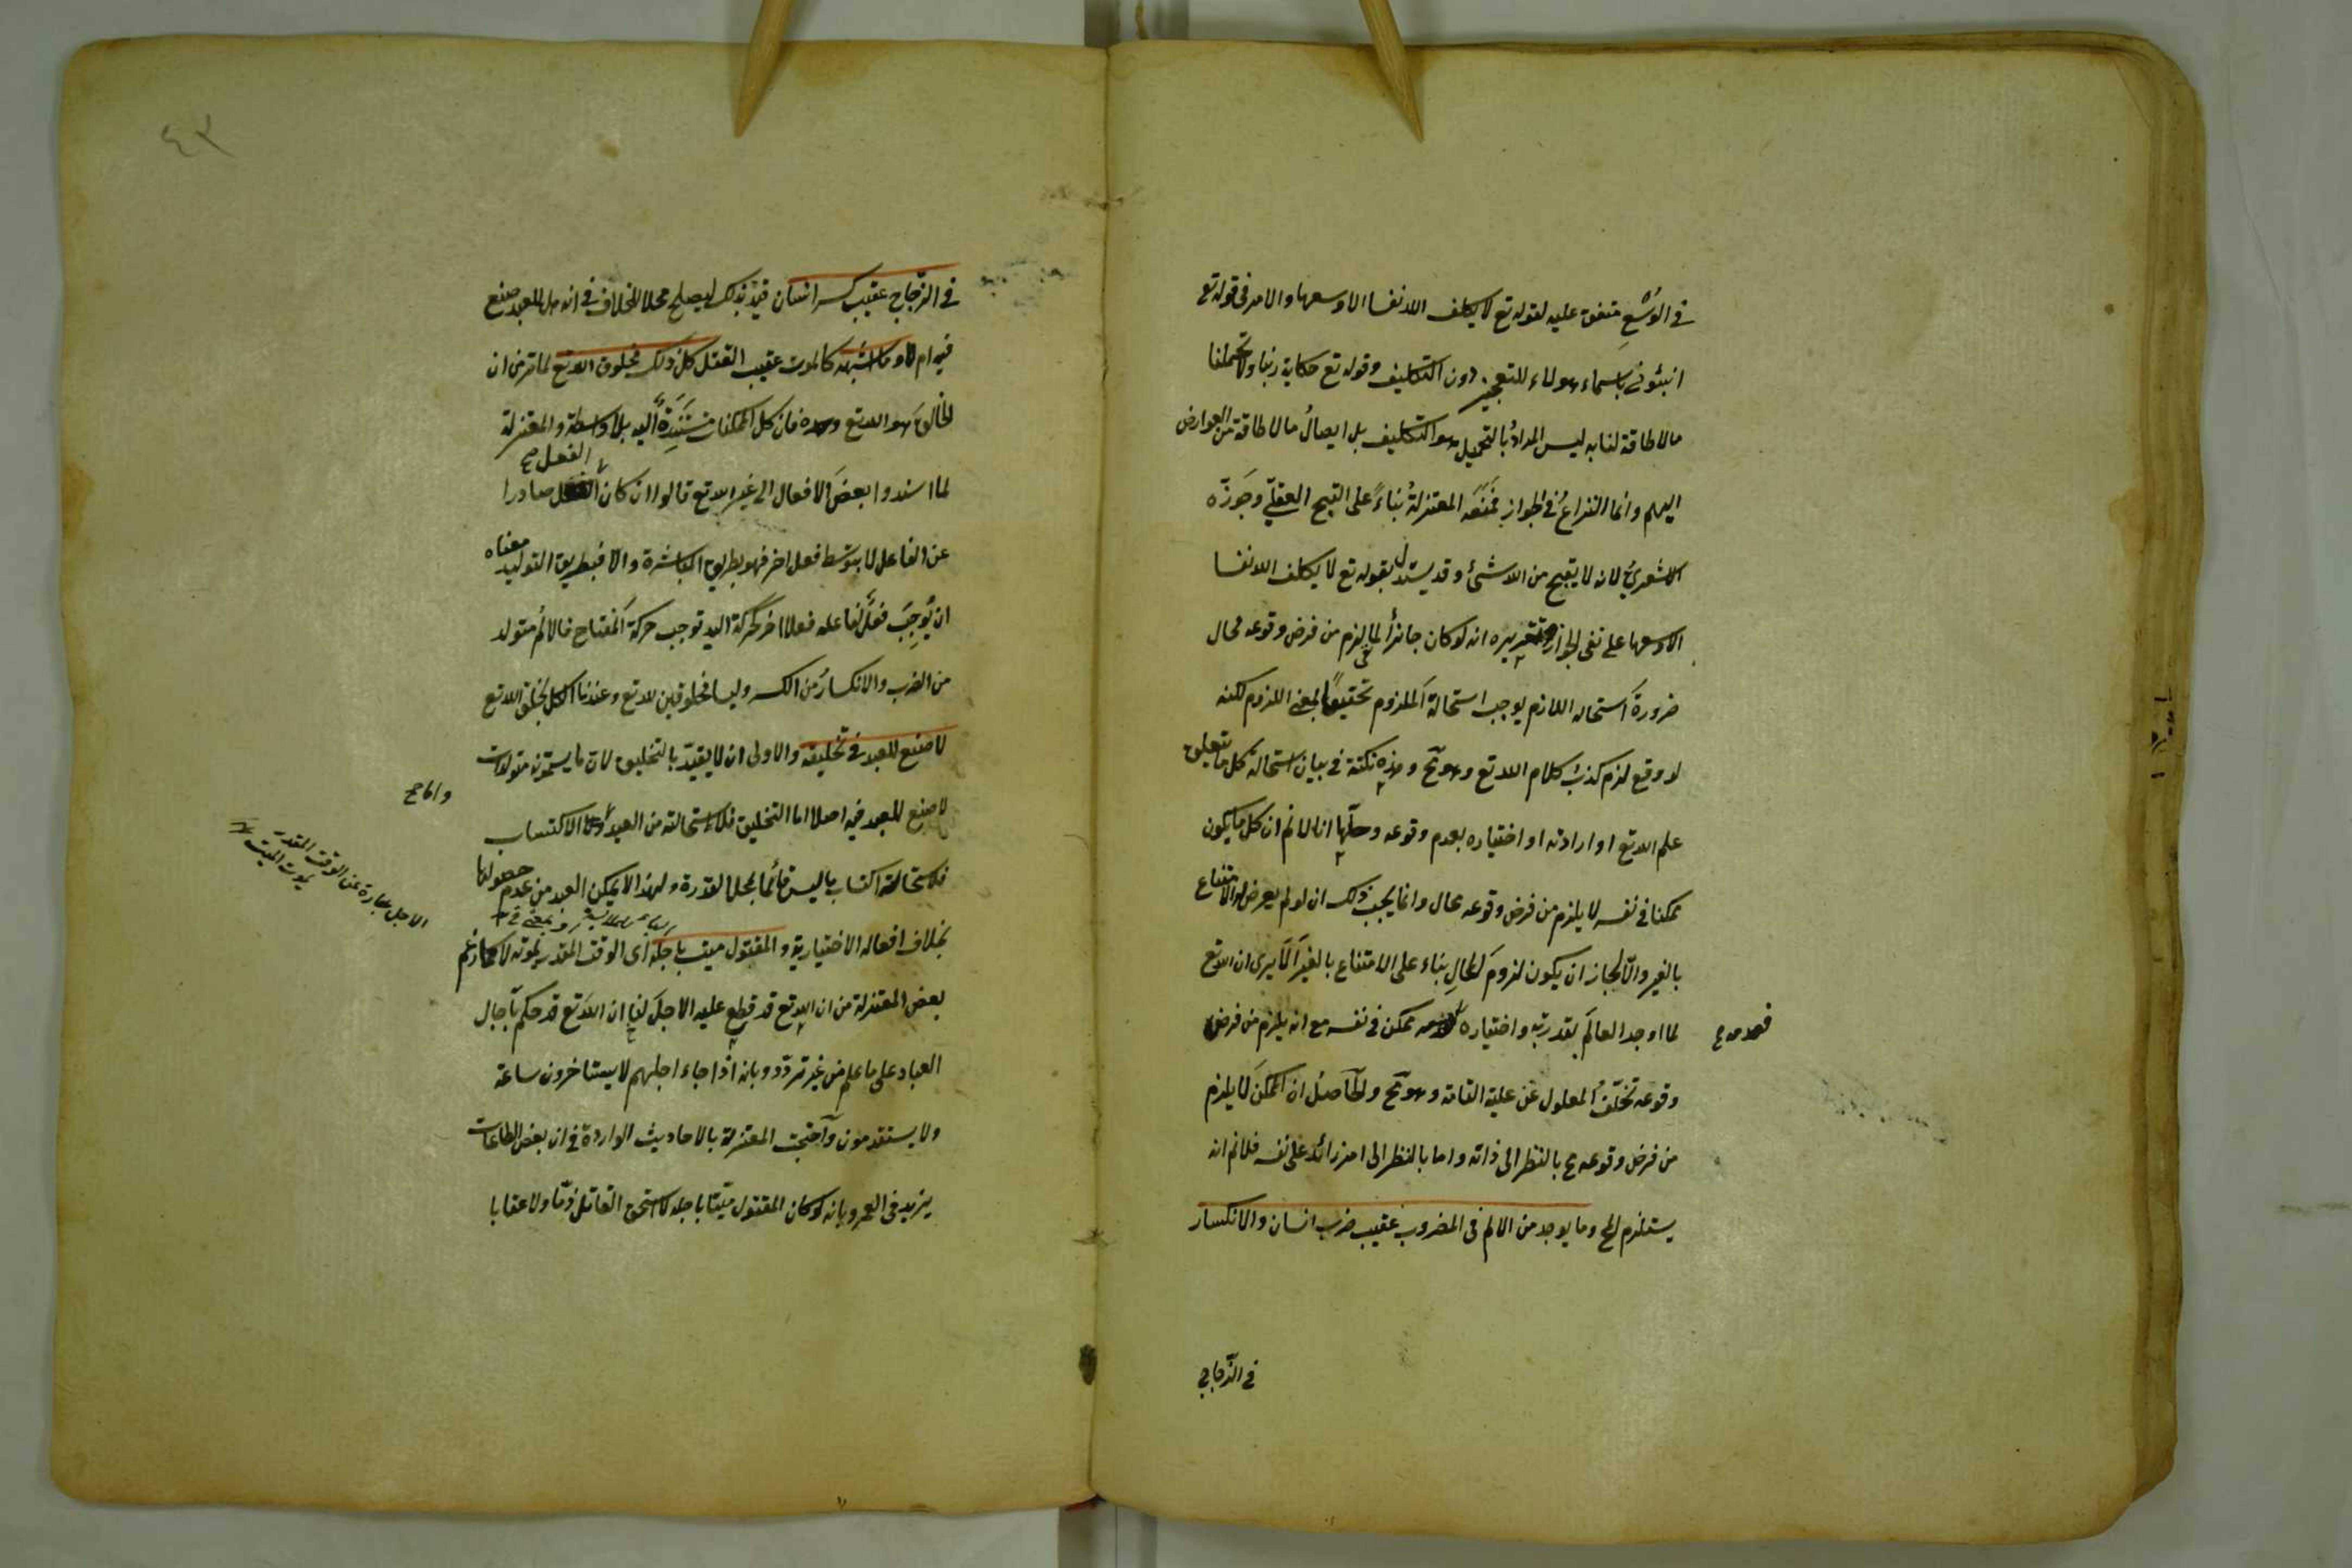 في الوُسْعِ متفق عليه لقوله تع لا يكلف الله نفسا الا وسعها والامر في قوله تع
انبئوني باسماء هؤلاء للتعجيز دون التكليف وقوله تع حكاية ربنا ولا تحملنا
مالا طاقة لنا به ليس المرادُ بالتحميل هو التكليف بل ايصالُ مالا طاقة من العوارض
اليهم وانما النزاعُ في الجواز فمَنَعَه المعتزلةُ بناءً على القبح العقلّي وجَوزّه
الاشعريُ لانه لا يقبح من الله شئ وقد يستدل بقوله تع لا يكلف الله نفسا
الا وسعها على نفي الجواز وتقريره انه لو كان جائزاً لما لزم من فرض وقوعه محال
ضرورةَ استحاله اللازم يوجب استحالةَ الملزوم تحقيقًا لمعنى اللزوم لكنه
لو وقع لزم كذبُ كلام الله تع وهو مح وهذه نكتة في بيان استحالة كل ما يتعلق
علم الله تع او ارادته او اختياره بعدم وقوعه وحلّها انا لا نم ان كل ما يكون
ممكنا في نفسه لا يلزم من فرض وقوعه محال وانما يجب ذلك ان لو لم يعرض له الامتناع
بالغير والّا لجاز ان يكون لزومَ المحالِ بناء على الامتناع بالغير اَلَا يرى ان الله تع
لما اوجد العالَم بقدرته واختياره فعدمه ممكن في نفسه مع انه يلزم من فرض
فعدمه صح
وقوعه تخلّفُ المعلول عن علية التامة وهو مح والحاصلُ ان الممكنَ لا يلزم
من فرض وقوعه مح بالنظر الى ذاته واما بالنظر الى امر زائد على نفسه فلا نم انه
يستلزم المح وما يوجد من الالم في المضروب عقيب ضرب انسان والانكسار
في الزّجاج
٤٣
في الزّجاج عقيب كسر انسان قيّد بذلك ليصلح محلا للخلاف في انه هل للعبد صنع
فيه ام لا وما اشبهه كالموت عقيب القتل كل ذلك مخلوق الله تع لما مر من ان
الخالق هو الله تع وحده فان كل الممكنات مستَنِدَةٌ اليه بلا واسطة والمعتزلة
الفعل صح
لما اسندوا بعضَ الافعال الى غير الله تع قالوا ان كان الفعل صادرا
عن الفاعل لا بتوسّط فعل اخر فهو بطريق المباشرة والا فبطريق التوليد معناه
ان يُوجِبَ فعلٌ لفاعله فعلا اخر كحركة اليد توجب حركةَ المفتاح فالالمُ متولد
من الضرب والانكسارُ من الكسر وليسا مخلوقين لله تع وعندنا الكل بخلق الله تع
لا صنع للعبد في تخليقه والاولى ان لا يقيّد بالتخليق لان ما يسمّونه متولدات
لا صنع للعبد فيه اصلا اما التخليق فلاستحالته من العبد واما الاكتساب
واما صح
فلاستحالة اكتساب ما ليس قائما لمحل القدرة ولهذا لا يمكن العبد من عدم حصولها
بخلاف افعاله الاختيارية والمقتول ميت باجله اى الوقت المقدر لموته لا كما زعم
الاجل عبارة عن الوقت المقدّر
يموت الميت
بعض المعتزلة من ان الله تع قد قطع عليه الاجلَ لنا ان الله تع قد حكم بآجال
العباد على ما علم من غير تردّد وبانه اذا جاء اجلهم لا يستأخرون ساعة
ولا يستقدمون وآحتجت المعتزلة بالاحاديث الواردة في ان بعض الطاعات
يزيد في العمر وبانه لو كان المقتول ميّتا باجله لا استحق القاتل ذمّا ولا عقابا